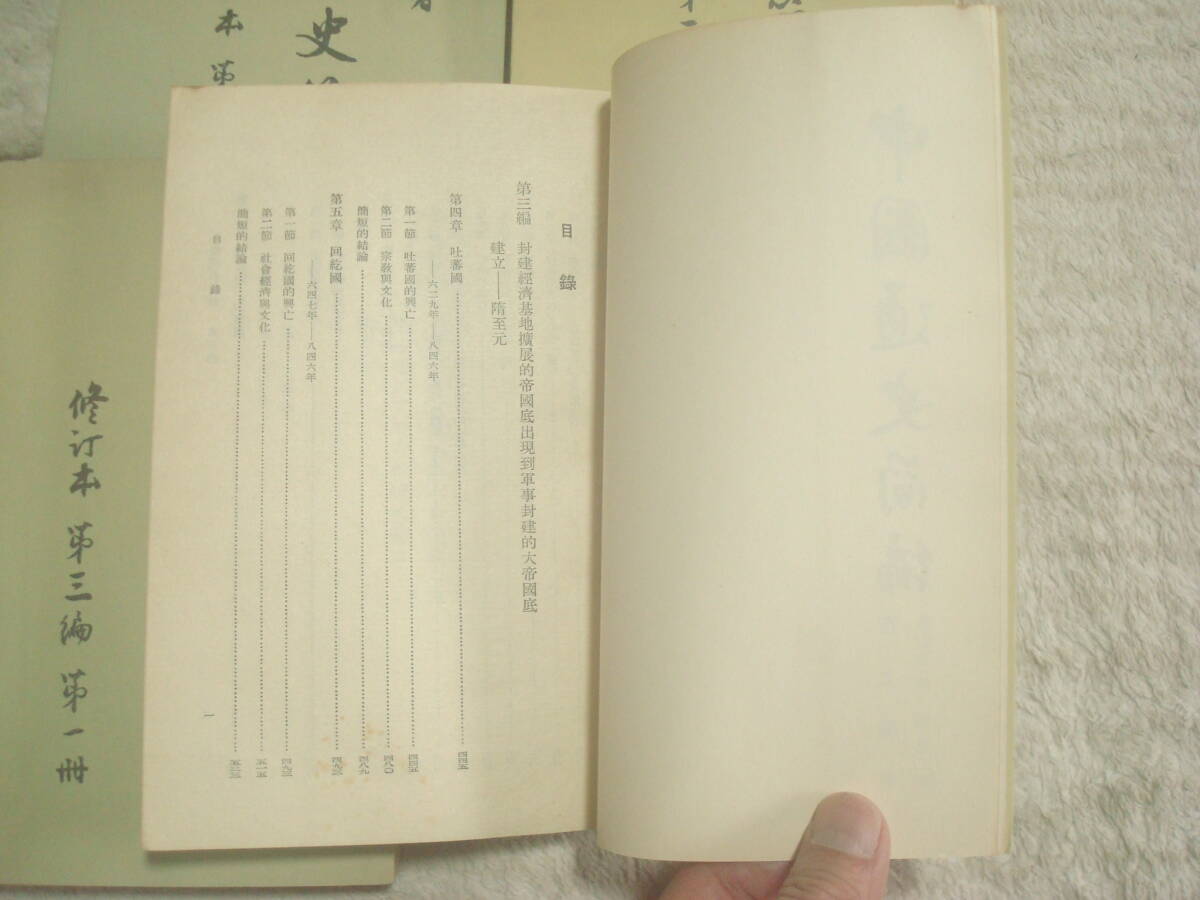 目錄
第三編 封建經濟基地擴展的帝國底出現到軍事封建的大帝國底
建立——隋至元
第四章 吐蕃國……四四五
——六二九年——八四六年
第一節 吐蕃國的興亡……四四五
第二節 宗教與文化……四八〇
簡短的結論……四八九
第五章 回紇國……四九三
——六四七年——八四六年
第一節 回紇國的興亡……四九三
第二節 社會經濟與文化……五一五
簡短的結論……五二三
目錄
一
修订本 第三编 第一册
史
本 第
中国通史简编